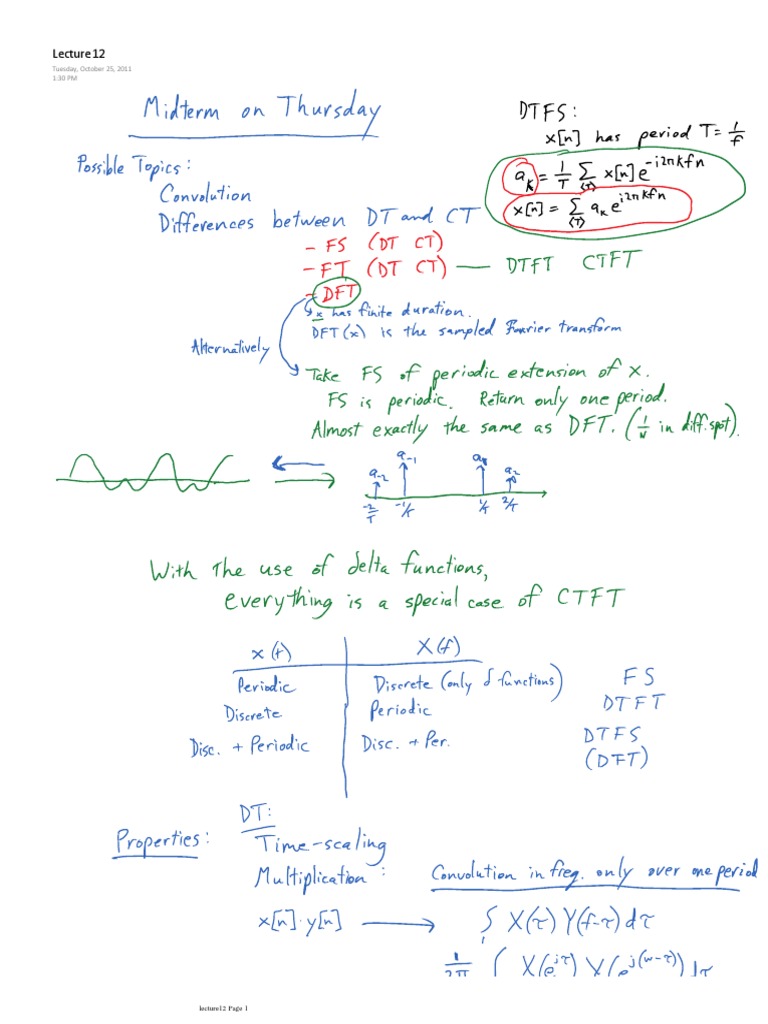 Lecture12
Tuesday, October 25, 2011
1:30 PM
Midterm on Thursday
DTFS:
x[n] has period T = 1/f
a_k = 1/T Σ_<T> x[n] e^-i2πkfn
x[n] = Σ_<T> a_k e^i2πkfn
Possible Topics:
Convolution
Differences between DT and CT
- FS (DT CT)
- FT (DT CT) — DTFT CTFT
- DFT
x has finite duration.
DFT(x) is the sampled Fourier transform
Alternatively
Take FS of periodic extension of x.
FS is periodic. Return only one period.
Almost exactly the same as DFT. (1/N in diff. spot).
a_-2 a_-1 a_1 a_2
-2/T -1/T 1/T 2/T
With the use of delta functions,
everything is a special case of CTFT
x(t) X(f)
Periodic Discrete (only δ functions) FS
Discrete Periodic DTFT
Disc. + Periodic Disc. + Per. DTFS
(DFT)
Properties: DT:
Time-scaling
Multiplication: Convolution in freq. only over one period
x[n]·y[n] → ∫_1 X(τ) Y(f-τ) dτ
1/2π ∫ X(e^jτ) Y(e^j(w-τ)) dτ
lecture12 Page 1